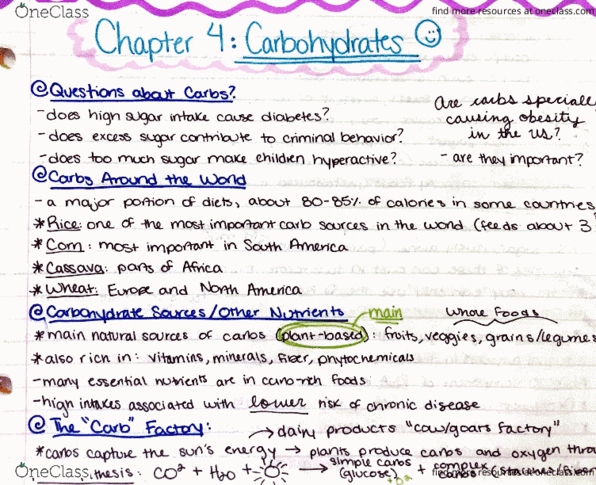 OneClass
find more resources at oneclass.com
Chapter 4: Carbohydrates
Questions about Carbs?
-does high sugar intake cause diabetes?
-does excess sugar contribute to criminal behavior?
-does too much sugar make children hyperactive?
are carbs speciale
causing obesity
in the US?
- are they important?
Carbs Around the World
- a major portion of diets, about 80-85% of calories in some countries
*Rice: one of the most important carb sources in the world (feeds about 3
*Corn: most important in South America
*Cassava: parts of Africa
*Wheat: Europe and North America
Carbohydrate Sources/Other Nutrients
main
Whole Foods
*main natural sources of carbs (plant-based): fruits, veggies, grains/legumes
*also rich in: vitamins, minerals, fiber, phytochemicals
-many essential nutrients are in carb-rich foods
-high intakes associated with lower risk of chronic disease
The "Carb" Factory:
→ dairy products "cow/goats factory"
*carbs capture the sun's energy → plants produce carbs and oxygen throu
OneClass
thesis: CO² + H₂O + → simple carbs (glucose) + complex carbs
find more resources at oneclass.com